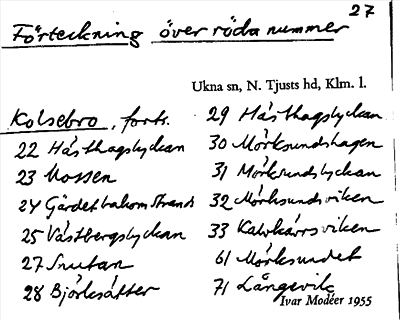 27
Förteckning över röda nummer
Ukna sn, N. Tjusts hd, Klm. l.
Kolsebro, forts.
22 Hästhagslyckan
23 Mossen
24 Gärdet bakom Strand
25 Västbergslyckan
27 Snutan
28 Björksätter
29 Hästhagslyckan
30 Mörksundshagen
31 Mörksundslyckan
32 Mörksundsviken
33 Kalvkärrsviken
61 Mörksundet
71 Långevik
Ivar Modéer 1955